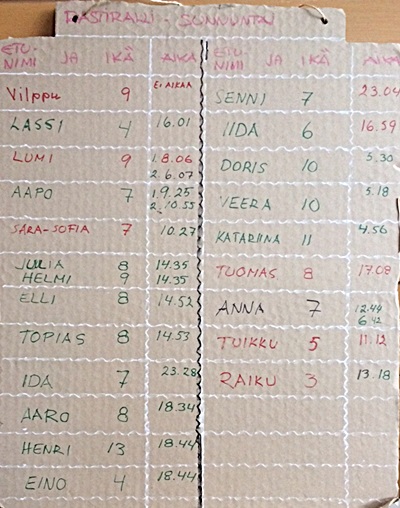 RASTIRALLI - SUNNUNTAI
ETU-
NIMI JA IKÄ AIKA
Vilppu 9 Ei AIKAA
LASSI 4 16.01
LUMI 9 1. 8.06
2. 6.07
AAPO 7 1. 9.25
2. 10.55
SARA-SOFIA 7 10.27
JULIA 8 14.35
HELMI 9 14.35
ELLI 8 14.52
TOPIAS 8 14.53
IDA 7 23.28
AARO 8 18.34
HENRI 13 18.44
EINO 4 18.44
ETU-
NIMI JA IKÄ AIKA
SENNI 7 23.04
IIDA 6 16.59
DORIS 10 5.30
VEERA 10 5.18
KATARIINA 11 4.56
TUOMAS 8 17.08
ANNA 7 12.49
6.42
TUIKKU 5 11.12
RAIKU 3 13.18